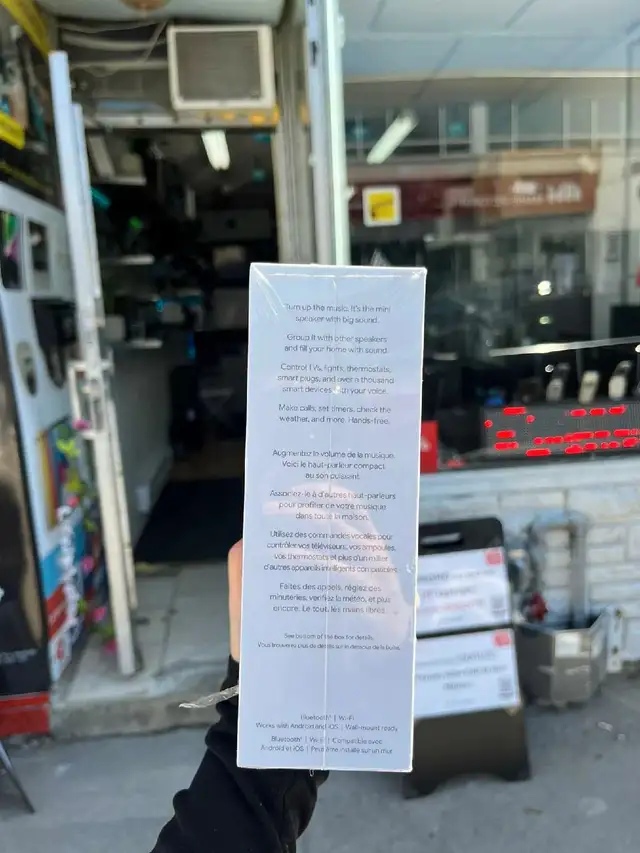 Turn up the music. It's the mini
speaker with big sound.
Group it with other speakers
and fill your home with sound.
Control TVs, lights, thermostats,
smart plugs, and over a thousand
smart devices with your voice.
Make calls, set timers, check the
weather, and more. Hands-free.
Augmentez le volume de la musique.
Voici le haut-parleur compact
au son puissant.
Associez-le à d'autres haut-parleurs
pour profiter de votre musique
dans toute la maison.
Utilisez des commandes vocales pour
contrôler vos téléviseurs, vos ampoules,
vos thermostats et plus d'un millier
d'autres appareils intelligents compatibles.
Faites des appels, réglez des
minuteries, vérifiez la météo, et plus
encore. Le tout, les mains libres.
See bottom of the box for details.
Vous trouverez plus de détails sur le dessous de la boîte.
Bluetooth® | Wi-Fi
Works with Android and iOS | Wall-mount ready
Bluetooth® | Wi-Fi | Compatible avec
Android et iOS | Peut être installé sur un mur